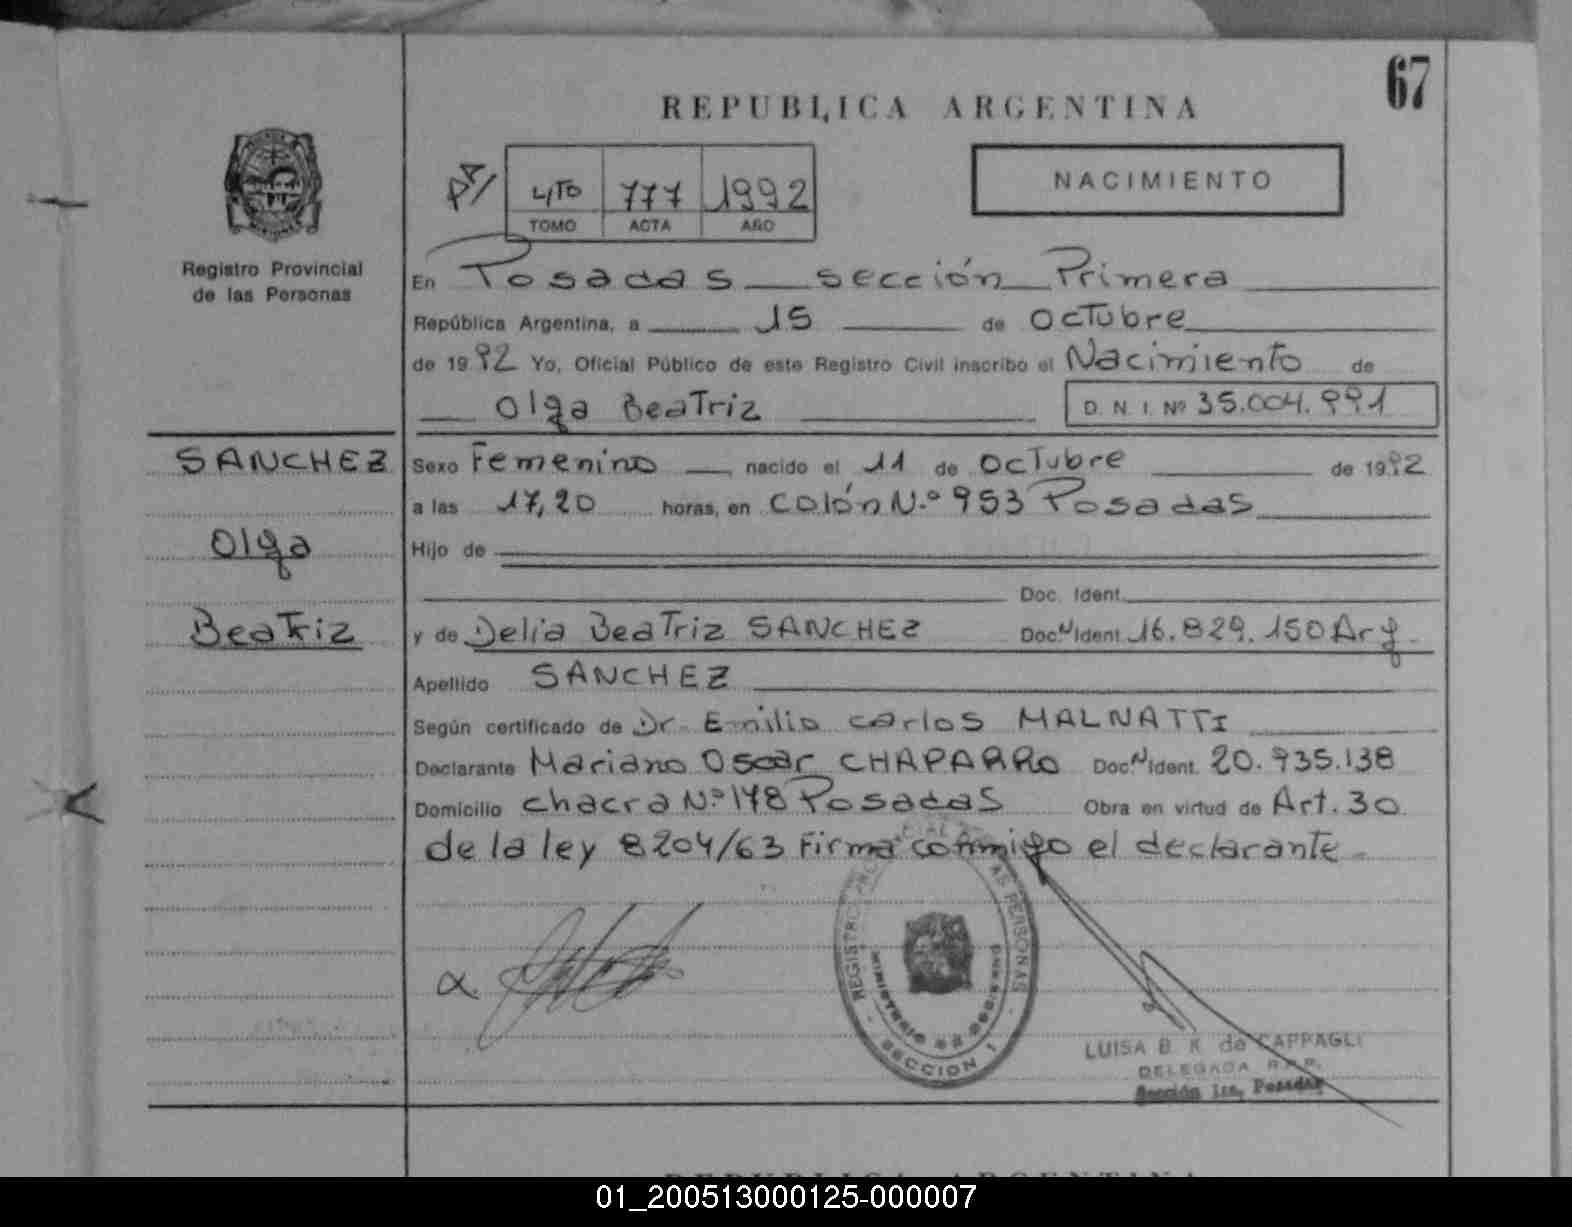 67
REPUBLICA ARGENTINA
4/to 777 1992
TOMO ACTA AÑO
NACIMIENTO
Registro Provincial
de las Personas
En Posadas sección Primera
República Argentina, a 15 de Octubre
de 1992 Yo, Oficial Público de este Registro Civil inscribo el Nacimiento de
Olga Beatriz D. N. I. Nº 35.004.991
SANCHEZ
Olga
Beatriz
Sexo Femenino, nacido el 11 de Octubre de 1992
a las 17,20 horas, en Colón N.º 953 Posadas
Hijo de
Doc. Ident.
y de Delia Beatriz SANCHEZ Doc.N Ident. 16.829.150 Arg.
Apellido SANCHEZ
Según certificado de Dr. Emilio Carlos MALNATTI
Declarante Mariano Oscar CHAPARRO Doc.N Ident. 20.935.138
Domicilio chacra Nº 148 Posadas Obra en virtud de Art. 30
de la ley 8204/63 Firma conmigo el declarante
REGISTRO PROVINCIAL DE LAS PERSONAS
MINISTERIO DE GOBIERNO
SECCION 1
LUISA B. K. de CAPPAGLI
DELEGADA R.P.P.
Sección 1ra. Posadas
REPUBLICA ARGENTINA
01_200513000125-000007